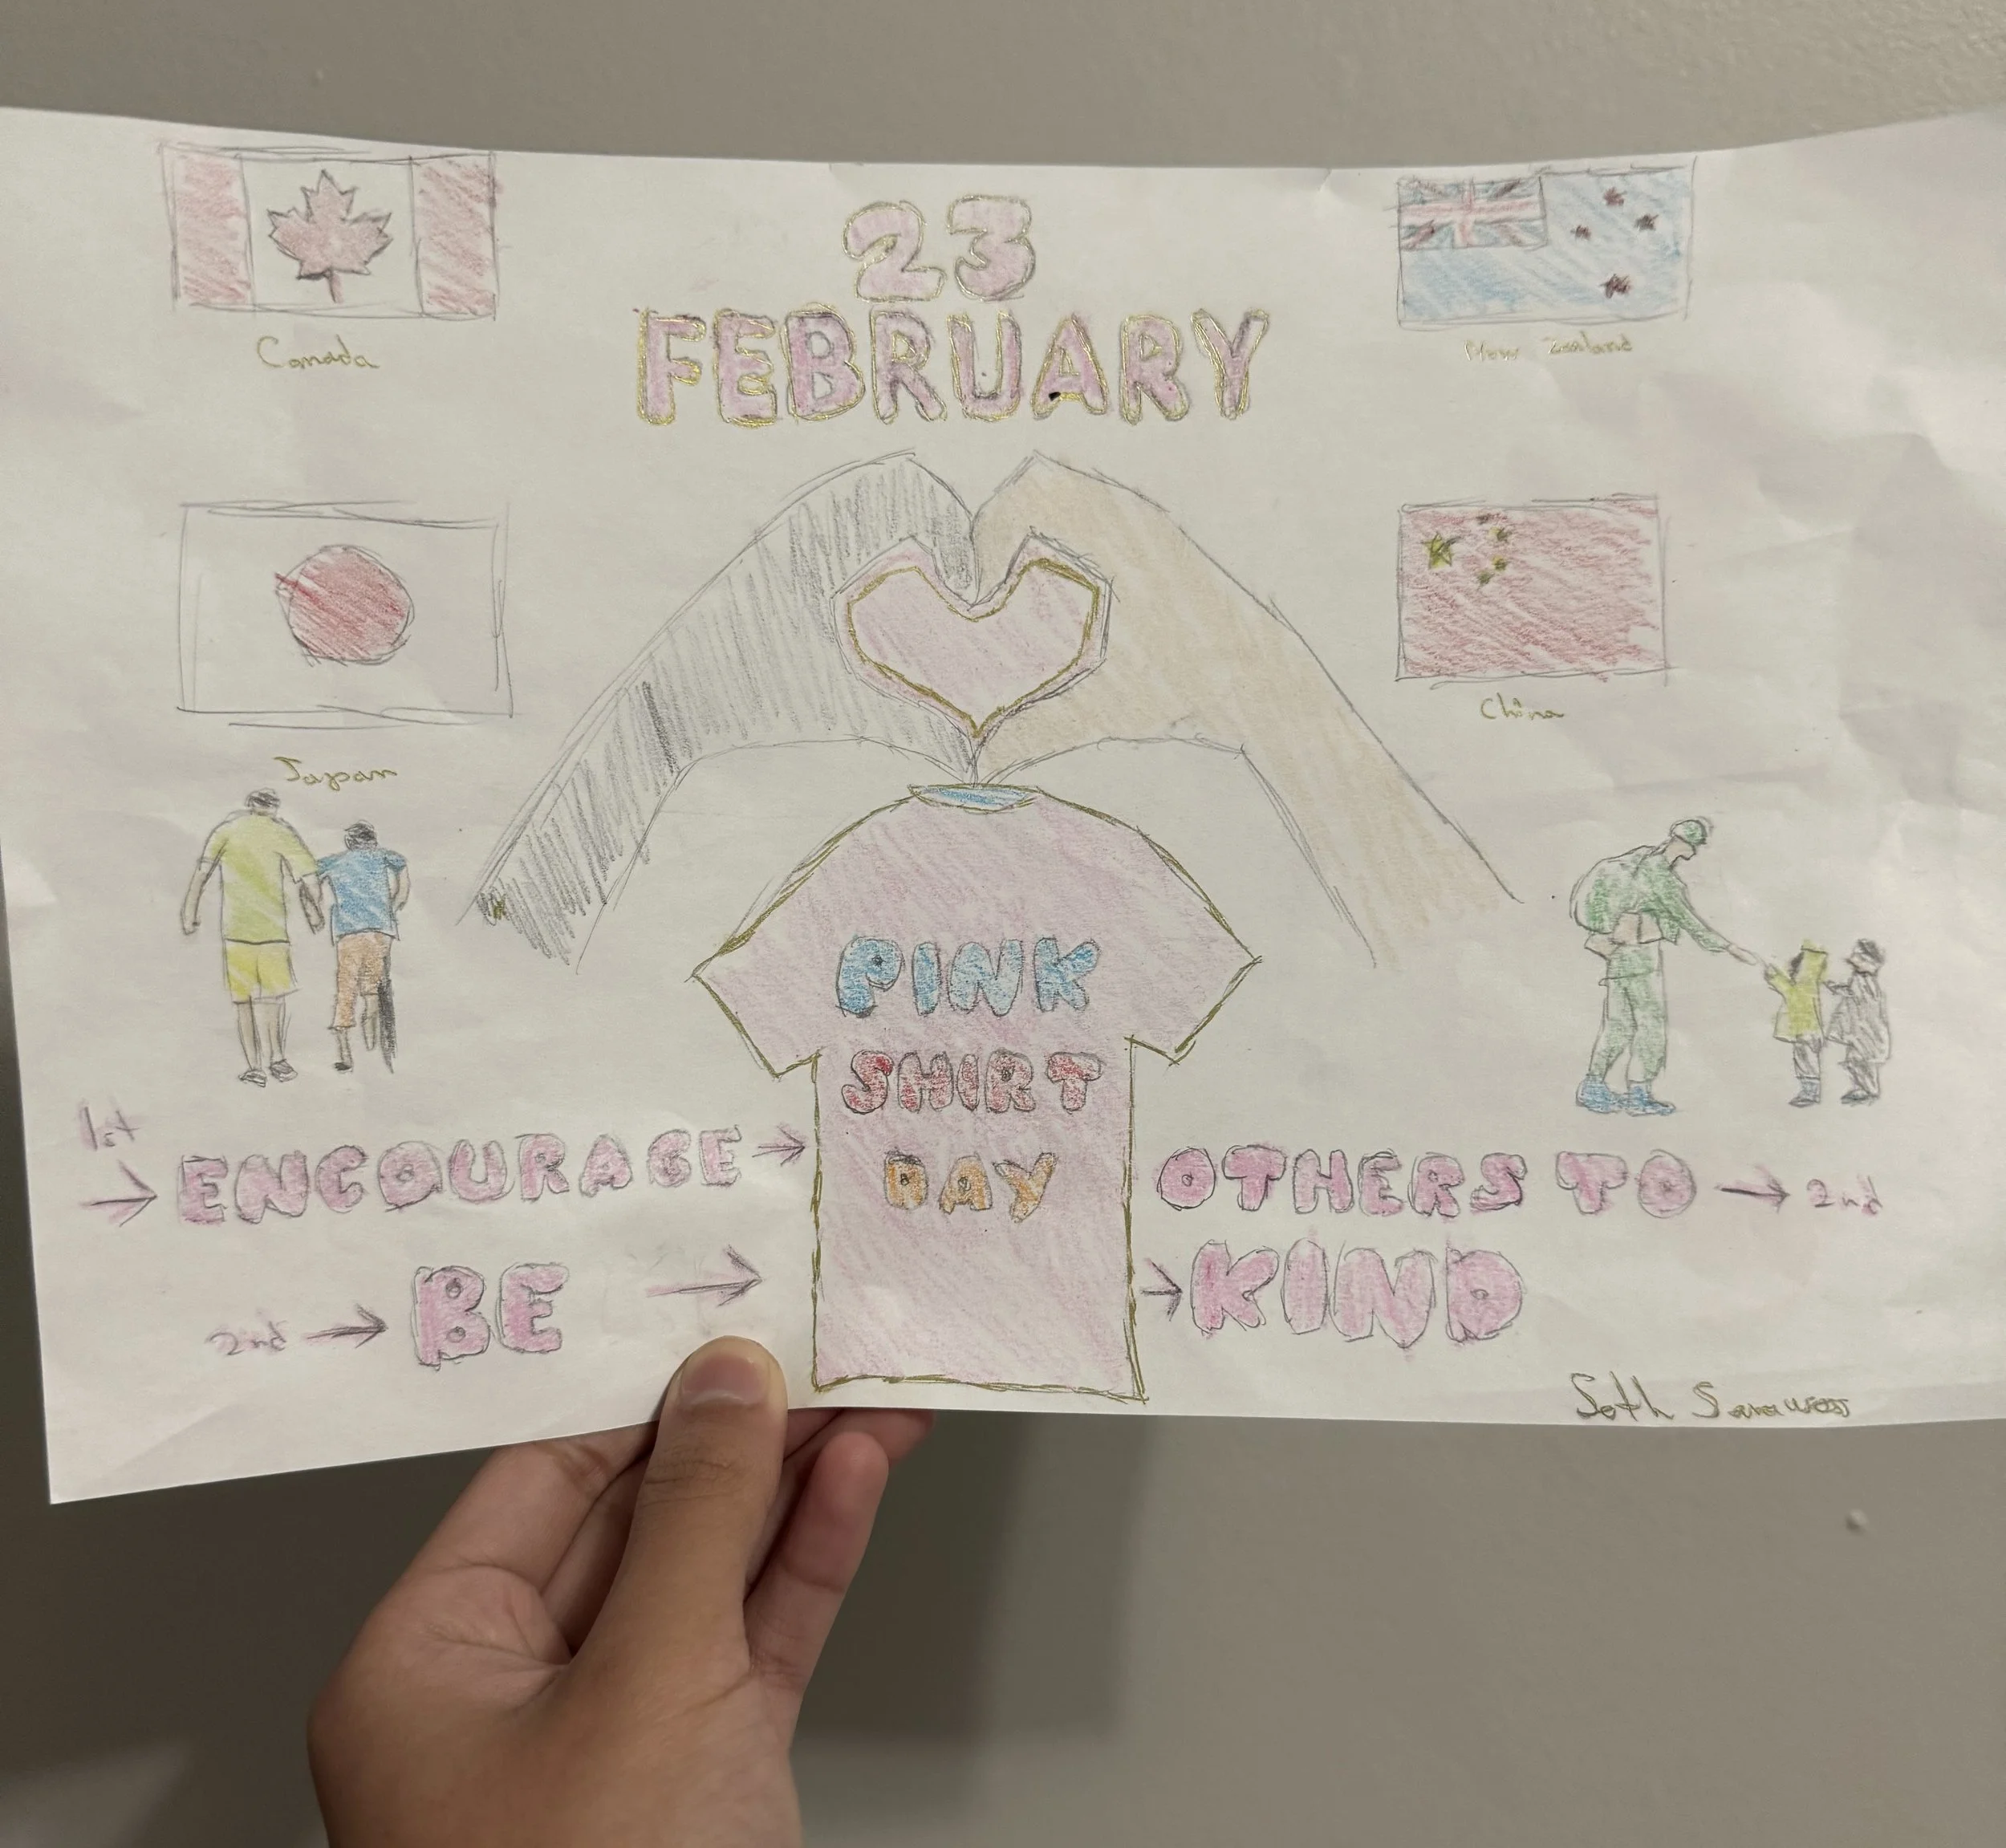 23
FEBRUARY
Canada
New Zealand
Japan
China
PINK
SHIRT
DAY
1st
→ ENCOURAGE →
OTHERS TO → 2nd
2nd → BE →
→ KIND